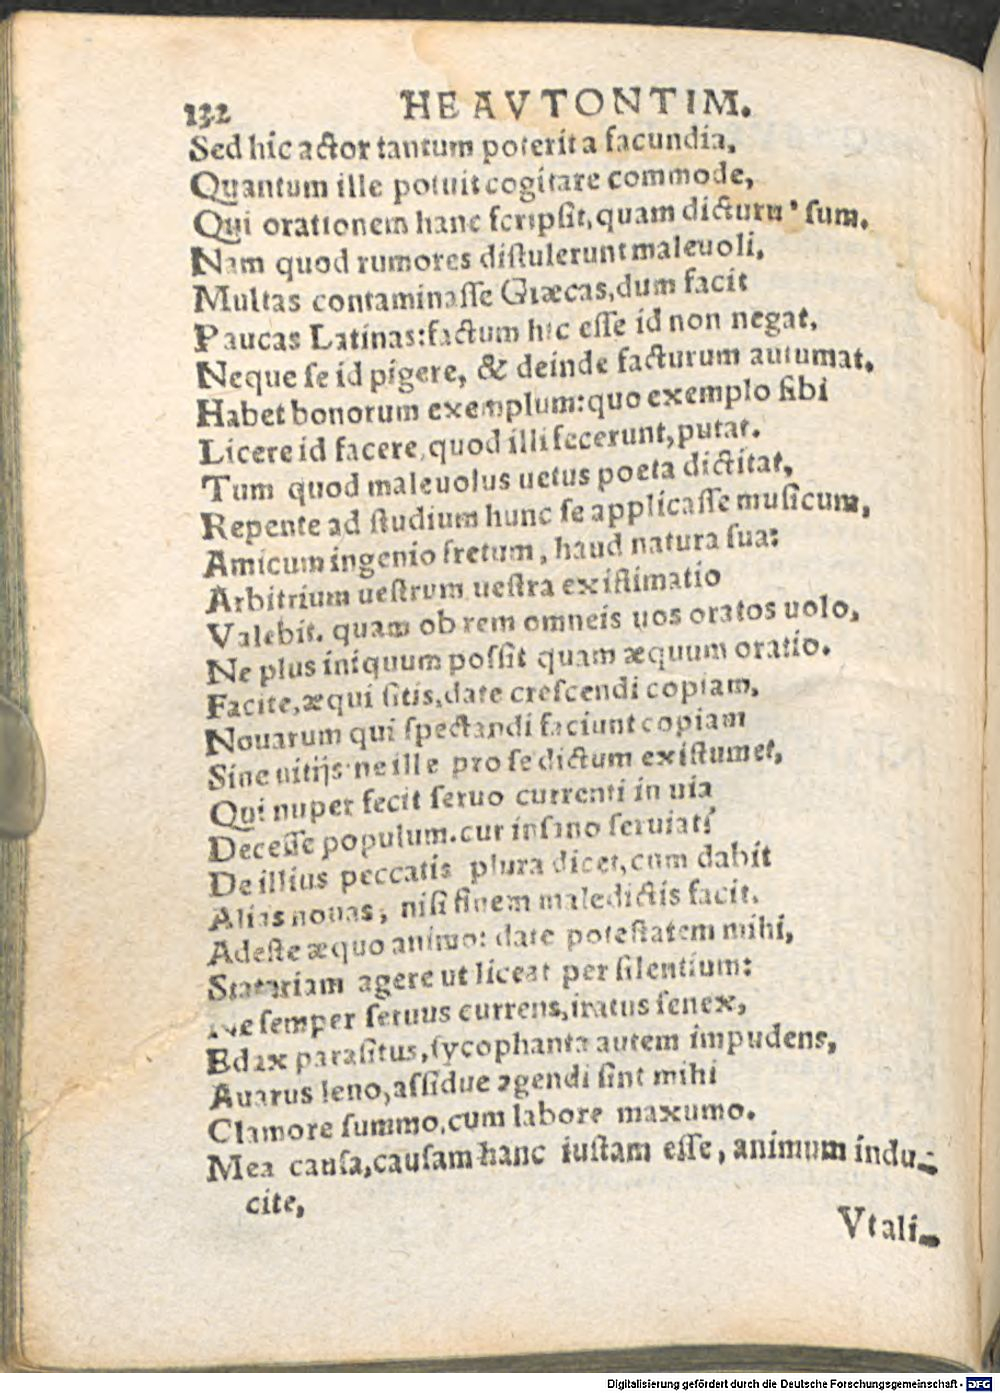 132 HEAVTONTIM.
Sed hic actor tantum poterit a facundia,
Quantum ille potuit cogitare commode,
Qui orationem hanc ſcripſit, quam dicturu' ſum.
Nam quod rumores diſtulerunt maleuoli,
Multas contaminaſſe Græcas, dum facit
Paucas Latinas: factum hic eſſe id non negat,
Neque ſe id pigere, & deinde facturum autumat.
Habet bonorum exemplum: quo exemplo ſibi
Licere id facere, quod illi fecerunt, putat.
Tum quod maleuolus uetus poeta dictitat,
Repente ad ſtudium hunc ſe applicaſſe muſicum,
Amicum ingenio fretum, haud natura ſua:
Arbitrium ueſtrum ueſtra exiſtimatio
Valebit. quam ob rem omneis uos oratos uolo,
Ne plus iniquum poſſit quam æquum oratio.
Facite, æqui ſitis, date creſcendi copiam,
Nouarum qui ſpectandi faciunt copiam
Sine uitijs: ne ille pro ſe dictum exiſtumet,
Qui nuper fecit ſeruo currenti in uia
Deceſſe populum. cur inſano ſeruiat?
De illius peccatis plura dicet, cum dabit
Alias nouas, niſi finem maledictis facit.
Adeſte æquo animo: date poteſtatem mihi,
Statariam agere ut liceat per ſilentium:
Ne ſemper ſeruus currens, iratus ſenex,
Edax paraſitus, ſycophanta autem impudens,
Auarus leno, aſſidue agendi ſint mihi
Clamore ſummo, cum labore maxumo.
Mea cauſa, cauſam hanc iuſtam eſſe, animum indu-
cite,
Vt ali-
Digitalisierung gefördert durch die Deutsche Forschungsgemeinschaft - DFG